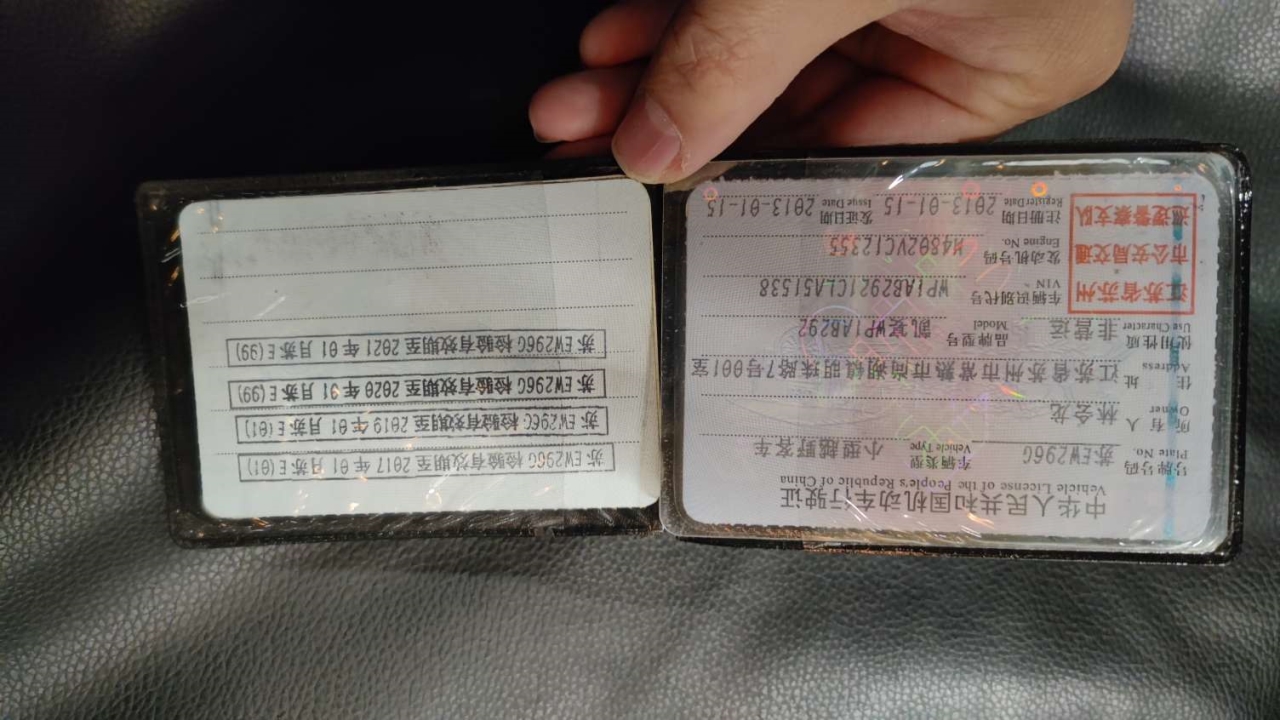 中华人民共和国机动车行驶证
Vehicle License of the People's Republic of China
号牌号码 苏EW296G 车辆类型 小型越野客车
Plate No. Vehicle Type
所有人 林金龙
Owner
住址 江苏省苏州市常熟市尚湖镇明珠路7号001室
Address
使用性质 非营运 品牌型号 凯宴WP1AB292
Use Character Model
江苏省苏州
市公安局交通
巡逻警察支队
车辆识别代号 WP1AB2921CLA51538
VIN
发动机号码 M4802VC12355
Engine No.
注册日期 2013-01-15 发证日期 2013-01-15
Register Date Issue Date
苏EW296G 检验有效期至 2017年 01月苏E(01)
苏EW296G 检验有效期至 2019年 01月苏E(01)
苏EW296G 检验有效期至 2020年 01月苏E(99)
苏EW296G 检验有效期至 2021年 01月苏E(99)